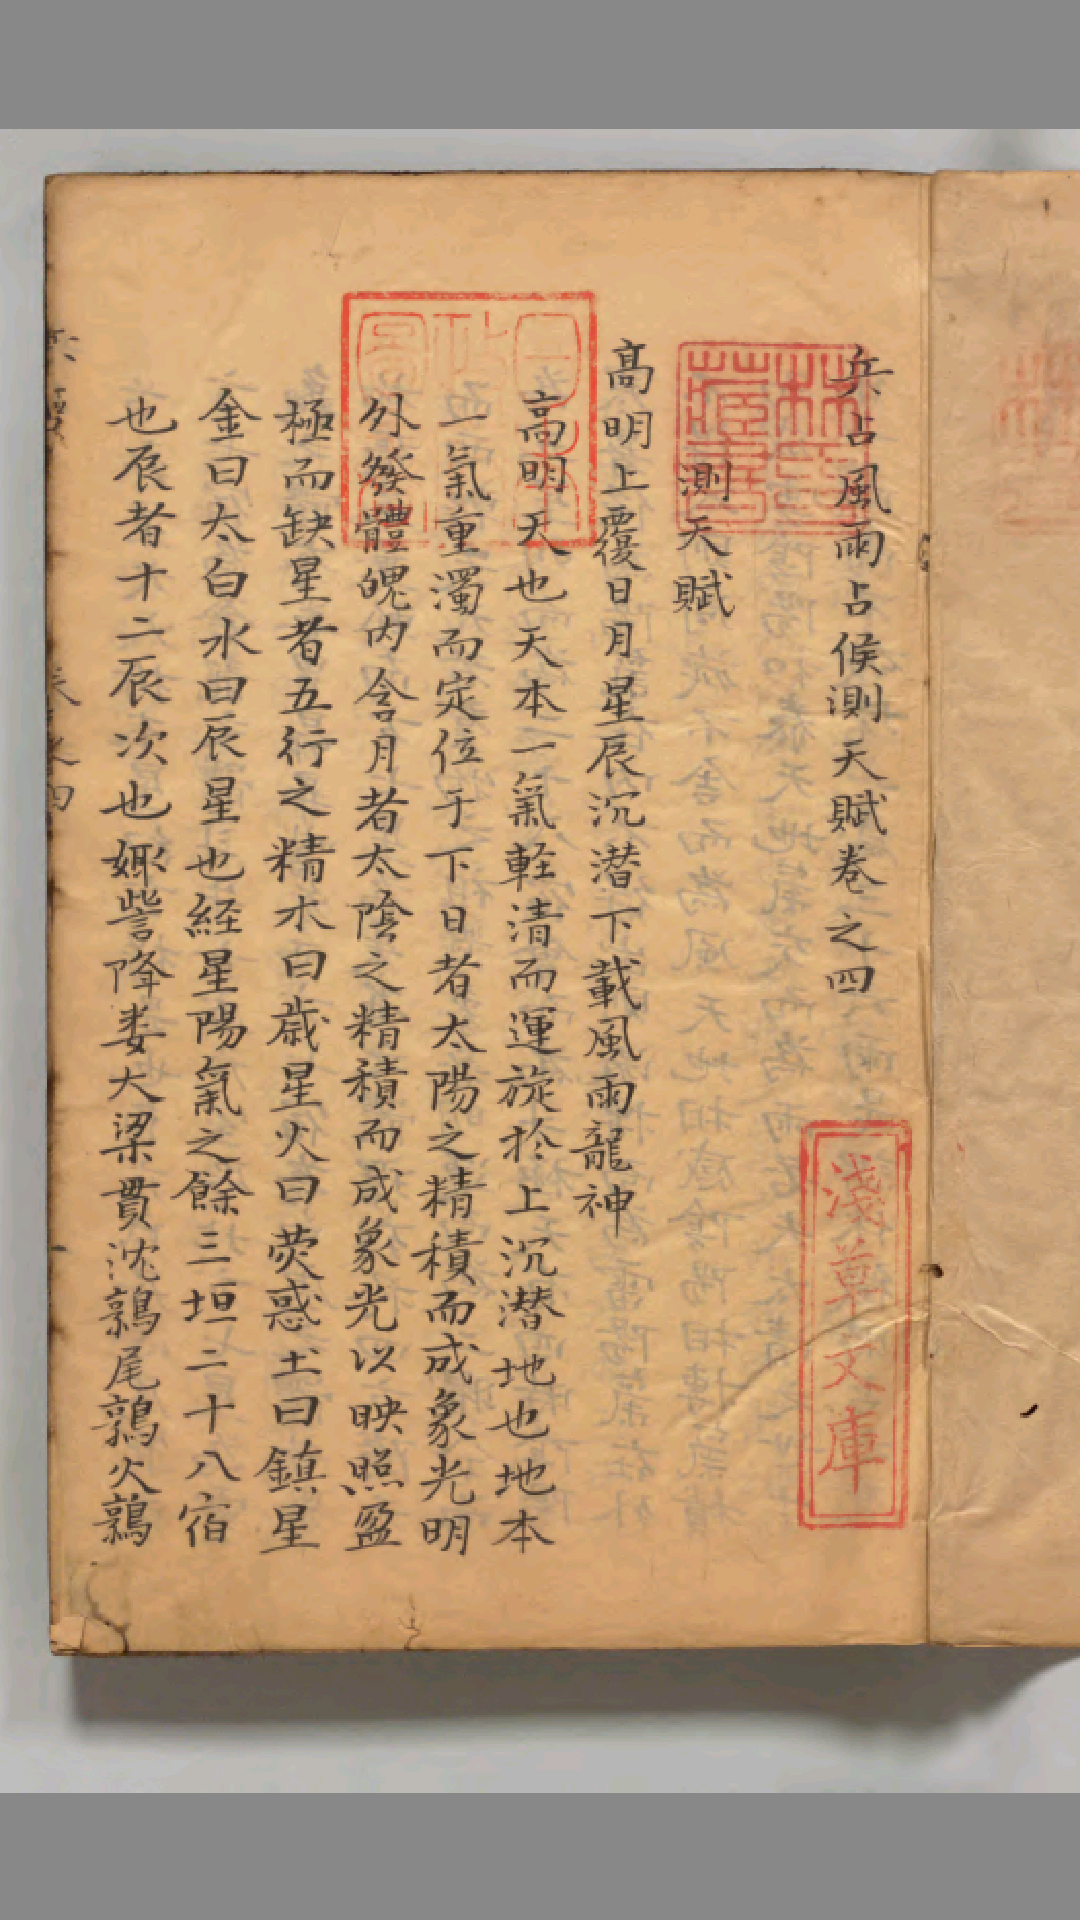 兵占風雨占候測天賦卷之四
測天賦
高明上覆日月星辰沉潜下載風雨龍神
高明天也天本一氣軽清而運旋於上沉潜地也地本
一氣重濁而定位于下日者太陽之精積而成象光明
外發體魄内含月者太陰之精積而成象光以映照盈
極而缺星者五行之精木曰歳星火曰荧惑土曰鎮星
金曰太白水曰辰星也経星陽氣之餘三垣二十八宿
也辰者十二辰次也娵訾降婁大梁實沈鶉尾鶉火鶉
林氏藏書
日本政府圖書
淺草文庫